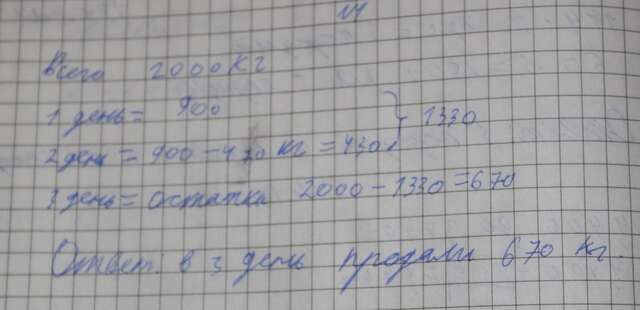 №1
Всего 2000 кг
1 день = 900
2 день = 900 - 470 кг = 430 } 1330
3 день = остатки 2000 - 1330 = 670
Ответ: в 3 день продали 670 кг.